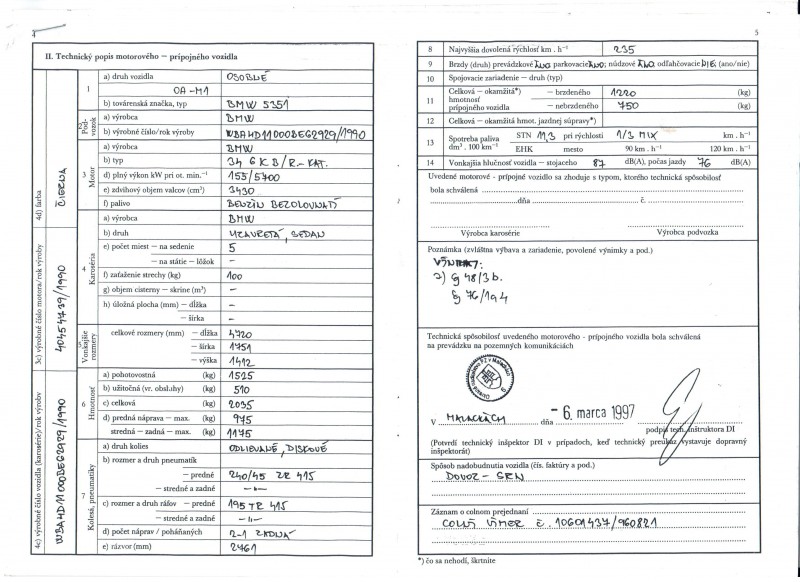 4
II. Technický popis motorového – prípojného vozidla
1
a) druh vozidla OSOBNÉ
OA-M1
b) továrenská značka, typ BMW 535i
2 Podvozok
a) výrobca BMW
b) výrobné číslo/rok výroby WBAHD11000BE62929/1990
3 Motor
a) výrobca BMW
b) typ 34 6 K B/R-KAT.
d) plný výkon kW pri ot. min.⁻¹ 155/5700
e) zdvihový objem valcov (cm³) 3430
f) palivo BENZÍN BEZOLOVNATÝ
4 Karoséria
a) výrobca BMW
b) druh UZAVRETÁ, SEDAN
e) počet miest – na sedenie 5
– na státie – lôžok –
f) zaťaženie strechy (kg) 100
g) objem cisterny – skrine (m³) –
h) úložná plocha (mm) – dĺžka –
– šírka –
5 Vonkajšie rozmery
celkové rozmery (mm) – dĺžka 4720
– šírka 1751
– výška 1412
6 Hmotnosť
a) pohotovostná (kg) 1525
b) užitočná (vr. obsluhy) (kg) 510
c) celková (kg) 2035
d) predná náprava – max. (kg) 975
stredná – zadná – max. (kg) 1175
7 Kolesá, pneumatiky
a) druh kolies ODLIEVANÉ, DISKOVÉ
b) rozmer a druh pneumatík
– predné 240/45 ZR 415
– stredné a zadné –„–
c) rozmer a druh ráfov – predné 195 TR 415
– stredné a zadné –„–
d) počet náprav / poháňaných 2-1 ZADNÁ
e) rázvor (mm) 2761
4d) farba ČIERNA
3c) výrobné číslo motora/rok výroby 40454739/1990
4c) výrobné číslo vozidla (karosérie)/rok výroby WBAHD11000BE62929/1990
5
8 Najvyššia dovolená rýchlosť km . h⁻¹ 235
9 Brzdy (druh) prevádzkové ÁNO parkovacie ÁNO; núdzové ÁNO, odľahčovacie NIE; (ano/nie)
10 Spojovacie zariadenie – druh (typ)
11 Celková – okamžitá*) hmotnosť prípojného vozidla – brzdeného 1220 (kg)
– nebrzdeného 750 (kg)
12 Celková – okamžitá hmot. jazdnej súpravy*)
13 Spotreba paliva dm³ . 100 km⁻¹ STN 11,3 pri rýchlosti 1/3 MIX km . h⁻¹
EHK mesto 90 km . h⁻¹ 120 km . h⁻¹
14 Vonkajšia hlučnosť vozidla – stojaceho 87 dB(A), počas jazdy 76 dB(A)
Uvedené motorové - prípojné vozidlo sa zhoduje s typom, ktorého technická spôsobilosť
bola schválená
dňa č.
Výrobca karosérie Výrobca podvozka
Poznámka (zvláštna výbava a zariadenie, povolené výnimky a pod.)
VÝNIMKY:
a) § 48/3 b.
§ 76/1 a 4
Technická spôsobilosť uvedeného motorového - prípojného vozidla bola schválená
na prevádzku na pozemných komunikáciách
V MALACKÁCH dňa - 6. marca 1997
podpis tech. inštruktora DI
(Potvrdí technický inšpektor DI v prípadoch, keď technický preukaz vystavuje dopravný
inšpektorát)
Spôsob nadobudnutia vozidla (čís. faktúry a pod.)
DOVOZ - SRN
Záznam o colnom prejednaní
COLNÝ VÝMER č. 10601437/960821
*) čo sa nehodí, škrtnite